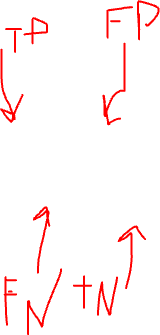 TP FP
FN tN